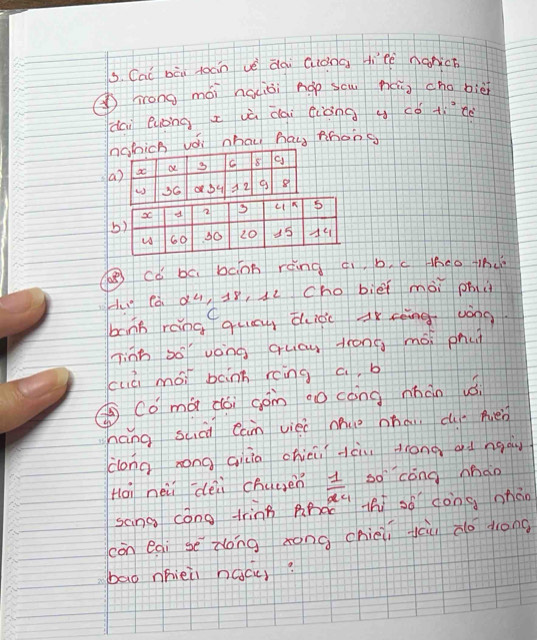 3. Các bài toán về đại lượng tỉ lệ nghịch
① Trong mỗi người hợp sau hãy cho biết
đại lượng x và đại lượng y có tỉ lệ
nghịch với nhau hay không
a) x 2 3 6 8 9
y 36 24 12 9 8
b) x 1 2 3 4 5
y 60 30 20 15 14
② Có ba bánh răng a, b, c theo thứ
tự là 24, 18, 12. Cho biết mỗi phút
bánh răng c quay được 18 vòng.
Tính số vòng quay trong mỗi phút
của mỗi bánh răng a, b
③ Có một đội gồm công nhân với
năng suất làm việc như nhau dự kiến
đóng xong chiếc tàu trong 21 ngày
Hỏi nếu điều chuyển 1 số công nhân
sang công trình khác thì số công nhân
còn lại sẽ đóng xong chiếc tàu đó trong
bao nhiêu ngày?